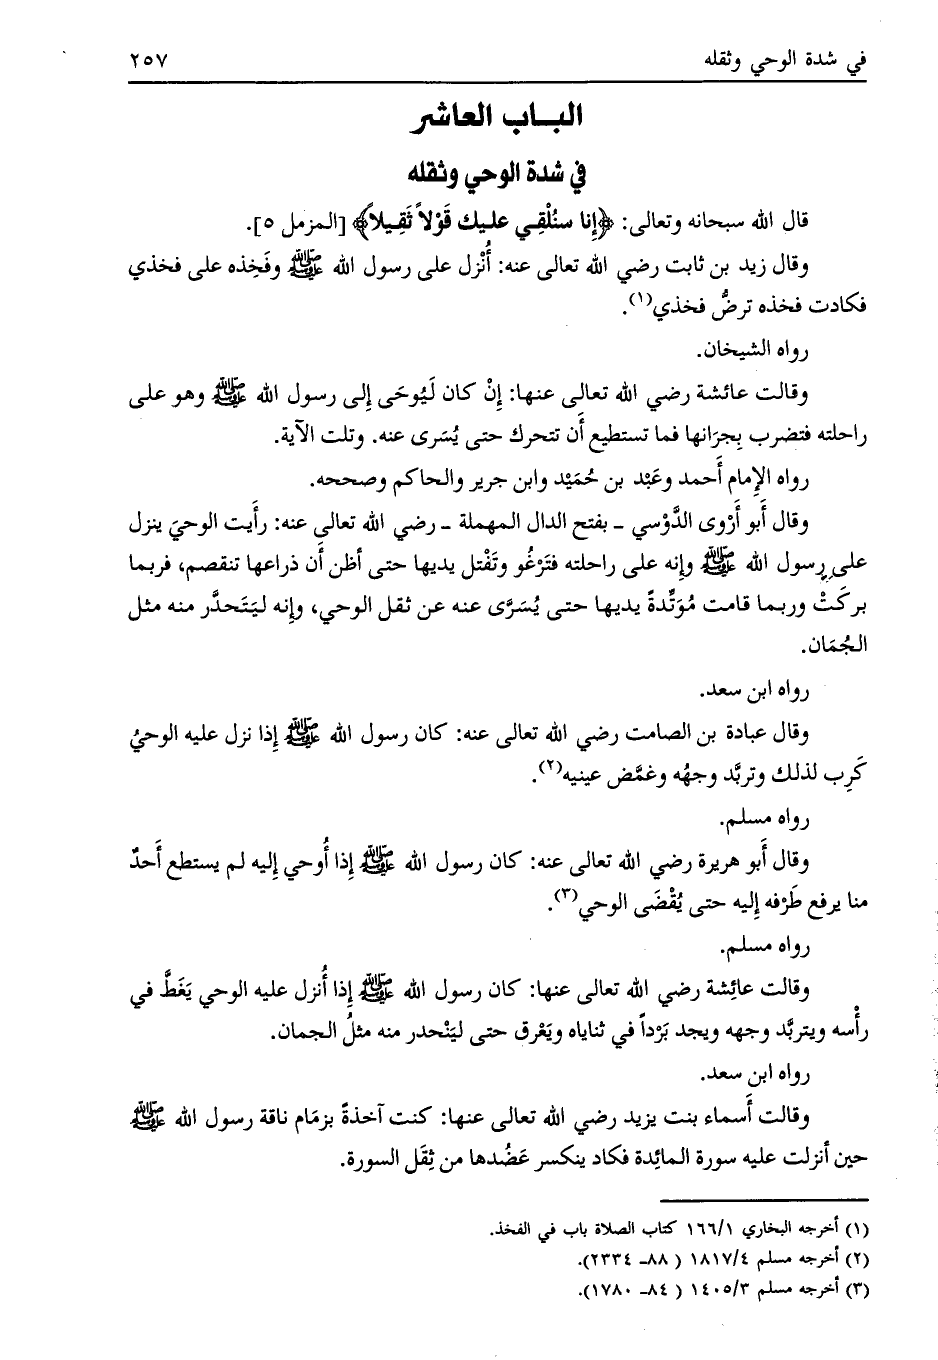 في شدة الوحي وثقله ٢٥٧
الباب العاشر
في شدة الوحي وثقله
قال الله سبحانه وتعالى: ﴿إِنا سنُلْقِي عليك قَوْلاً ثَقِيلاً﴾ [المزمل ٥].
وقال زيد بن ثابت رضي الله تعالى عنه: أُنْزل على رسول الله ﷺ وفَخِذه على فخذي
فكادت فخذه ترضُّ فخذي(١).
رواه الشيخان.
وقالت عائشة رضي الله تعالى عنها: إِنْ كان لَيُوحَى إِلى رسول الله ﷺ وهو على
راحلته فتضرب بِجرَانها فما تستطيع أَن تتحرك حتى يُسَرى عنه. وتلت الآية.
رواه الإِمام أَحمد وعَبْد بن حُمَيْد وابن جرير والحاكم وصححه.
وقال أَبو أَرْوى الدَّوْسي ـ بفتح الدال المهملة ـ رضي الله تعالى عنه: رأَيت الوحيَ ينزل
على رسول الله ﷺ وإِنه على راحلته فتَرْغُو وتَفْتل يديها حتى أظن أَن ذراعها تنقصم، فربما
بركَتْ وربما قامت مُوَتِّدةً يديها حتى يُسَرَّى عنه عن ثقل الوحي، وإِنه ليَتَحدَّر منه مثل
الجُمَان.
رواه ابن سعد.
وقال عبادة بن الصامت رضي الله تعالى عنه: كان رسول الله ﷺ إِذا نزل عليه الوحيُ
كَرِب لذلك وتربَّد وجهُه وغمَّض عينيه(٢).
رواه مسلم.
وقال أَبو هريرة رضي الله تعالى عنه: كان رسول الله ﷺ إِذا أُوحي إِليه لم يستطع أَحدٌ
منا يرفع طَرْفه إِليه حتى يُقْضَى الوحي(٣).
رواه مسلم.
وقالت عائِشة رضي الله تعالى عنها: كان رسول الله ﷺ إِذا أُنزل عليه الوحي يَغَطَّ في
رأْسه ويتربَّد وجهه ويجد بَرْداً في ثناياه ويَعْرق حتى ليَنْحدر منه مثلُ الجمان.
رواه ابن سعد.
وقالت أَسماء بنت يزيد رضي الله تعالى عنها: كنت آخذةً بزمَام ناقة رسول الله ﷺ
حين أنزلت عليه سورة المائِدة فكاد ينكسر عَضُدها من ثِقَل السورة.
(١) أخرجه البخاري ١٦٦/١ كتاب الصلاة باب في الفخذ.
(٢) أخرجه مسلم ١٨١٧/٤ ( ٨٨ـ ٢٣٣٤).
(٣) أخرجه مسلم ١٤٠٥/٣ ( ٨٤ـ ١٧٨٠).